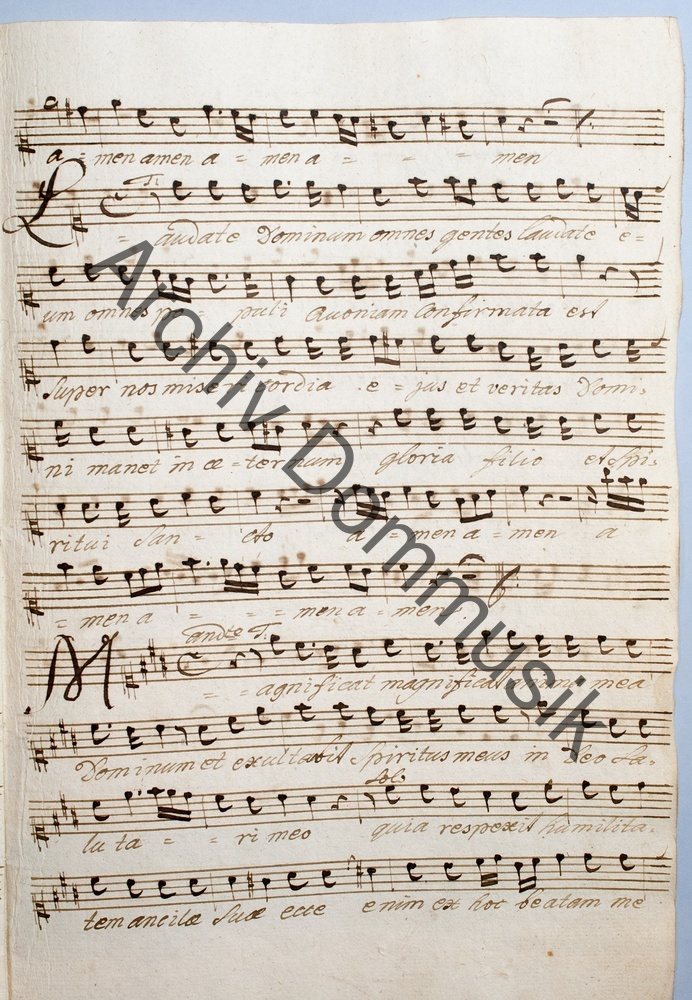 a - men amen a = men a = - = men
T:
L = audate Dominum omnes gentes laudate e=
um omnes po = puli Quoniam Confirmata est
Super nos misericordia e = jus et veritas Domi=
ni manet in æ = ternum gloria filio et Spi=
ritui San = cto a = men a = men a
= men a = = = men a = men.
andte T.
M = = agnificat magnificat anima mea
Dominum et exultavit Spiritus meus in Deo Sa=
Sol:
luta = = ri meo quia respexit humilita=
tem ancilæ Suæ ecce enim ex hoc beatam me
Archiv Dommusik